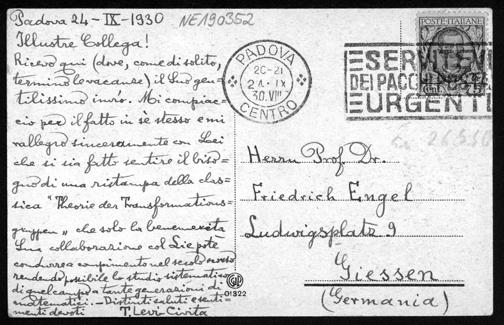 Padova 24-IX-1930
NE190352
Illustre Collega!
Ricevo qui (dove, come di solito,
termino le vacanze) il Suo gen=
tilissimo invio. Mi compiac=
cio per il fatto in sè stesso e mi
rallegro sinceramente con Lei
che si sia fatto sentire il biso=
gno di una ristampa della clas=
sica "Theorie der Transformations=
gruppen" che solo la benemerita
Sua collaborazione col Lie potè
condurre a compimento nel secolo scorso
rendendo possibile lo studio sistematico
di quel campo a tante generazioni di
matematici. - Distinti saluti e senti=
menti devoti T. Levi Civita
PADOVA
20-21
24.IX
30.VIII
CENTRO
POSTE ITALIANE
SERVITEVI
DEI PACCHI
URGENTI
Herrn Prof. Dr.
Friedrich Engel
Ludwigsplatz 9
Giessen
(Germania)
01322